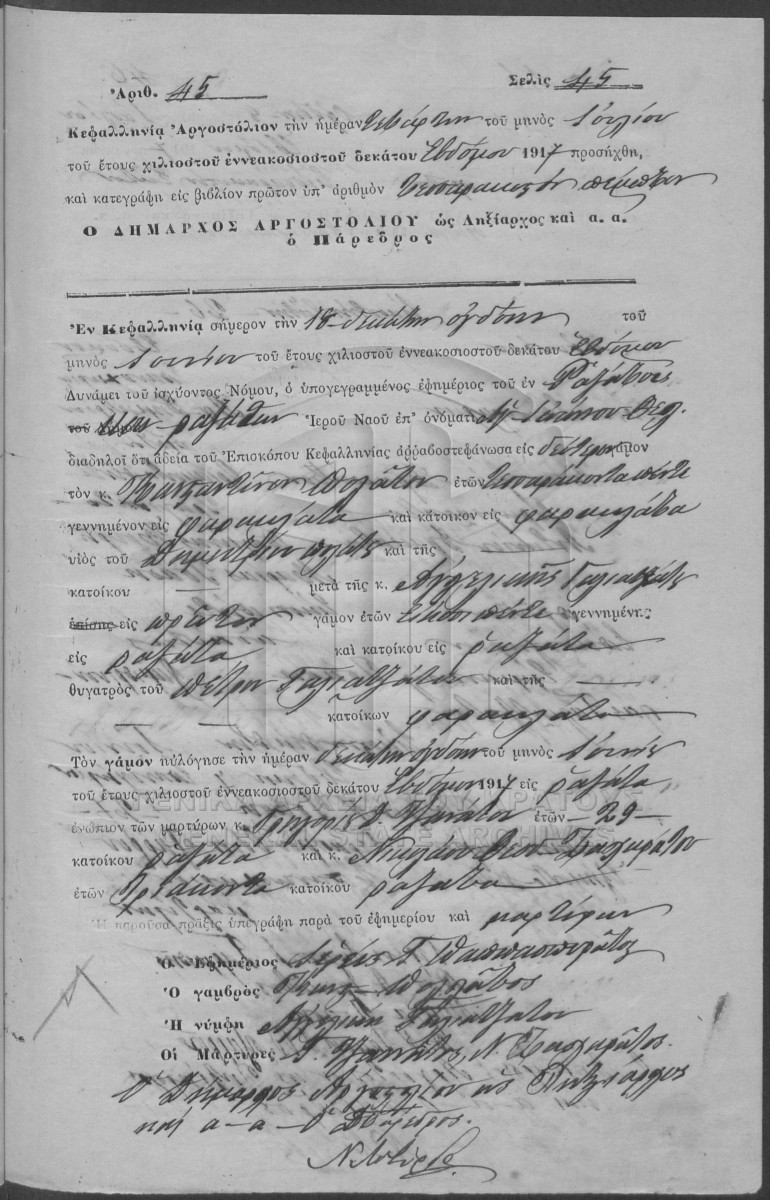 Ἀριθ. 45 Σελὶς 45
Κεφαλληνία Ἀργοστόλιον τὴν ἡμέραν τετάρτην τοῦ μηνὸς Ἰουλίου
τοῦ ἔτους χιλιοστοῦ ἐννεακοσιοστοῦ δεκάτου ἑβδόμου 1917 προσήχθη,
καὶ κατεγράφη εἰς βιβλίον πρῶτον ὑπ' ἀριθμὸν τεσσαρακοστὸν πέμπτον
Ο ΔΗΜΑΡΧΟΣ ΑΡΓΟΣΤΟΛΙΟΥ ὡς Ληξίαρχος καὶ α. α.
ὁ Πάρεδρος
Ἐν Κεφαλληνίᾳ σήμερον τὴν 18 δεκάτην ὀγδόην τοῦ
μηνὸς Ἰουνίου τοῦ ἔτους χιλιοστοῦ ἐννεακοσιοστοῦ δεκάτου ἑβδόμου
Δυνάμει τοῦ ἰσχύοντος Νόμου, ὁ ὑπογεγραμμένος ἐφημέριος τοῦ ἐν
τοῦ Ἱεροῦ Ναοῦ ἐπ' ὀνόματι Θεολ.
διαδηλοῖ ὅτι ἀδείᾳ τοῦ Ἐπισκόπου Κεφαλληνίας ἀῤῥαβοστεφάνωσα εἰς δεύτερον γάμον
τὸν κ. Κωνσταντῖνον ἐτῶν τεσσαράκοντα πέντε
γεννημένον εἰς φαρακλάτα καὶ κάτοικον εἰς φαρακλάτα
υἱὸς τοῦ Δημητρίου καὶ τῆς
κατοίκου μετὰ τῆς κ. Ἀγγελικῆς Γαλιατζάτου
ἐπίσης εἰς πρῶτον γάμον ἐτῶν εἴκοσι πέντε γεννημένης
εἰς ραζάτα καὶ κατοίκου εἰς ραζάτα
θυγατρὸς τοῦ Πέτρου Γαλιατζάτου καὶ τῆς
κατοίκων φαρακλάτα
Τὸν γάμον ηὐλόγησε τὴν ἡμέραν δεκάτην ὀγδόην τοῦ μηνὸς Ἰουνίου
τοῦ ἔτους χιλιοστοῦ ἐννεακοσιοστοῦ δεκάτου ἑβδόμου 1917 εἰς ραζάτα
ΓΕΝΙΚΑ ΑΡΧΕΙΑ ΤΟΥ ΚΡΑΤΟΥΣ
ἐνώπιον τῶν μαρτύρων κ. Γρηγορίου Τζανάτου ἐτῶν 29
GENERAL STATE ARCHIVES
κατοίκου ραζάτα καὶ κ. Νικολάου
ἐτῶν τριάκοντα κατοίκου ραζάτα
Ἡ παροῦσα πρᾶξις ὑπεγράφη παρὰ τοῦ ἐφημερίου καὶ μαρτύρων
Ὁ Ἐφημέριος
Ὁ γαμβρὸς Κωνστ.
Ἡ νύμφη Ἀγγελικὴ Γαλιατζάτου
Οἱ Μάρτυρες Γ. Τζανάτος, Ν.
Ὁ Δήμαρχος Ἀργοστολίου ὡς Ληξίαρχος
καὶ α-α- Ὁ Πάρεδρος.